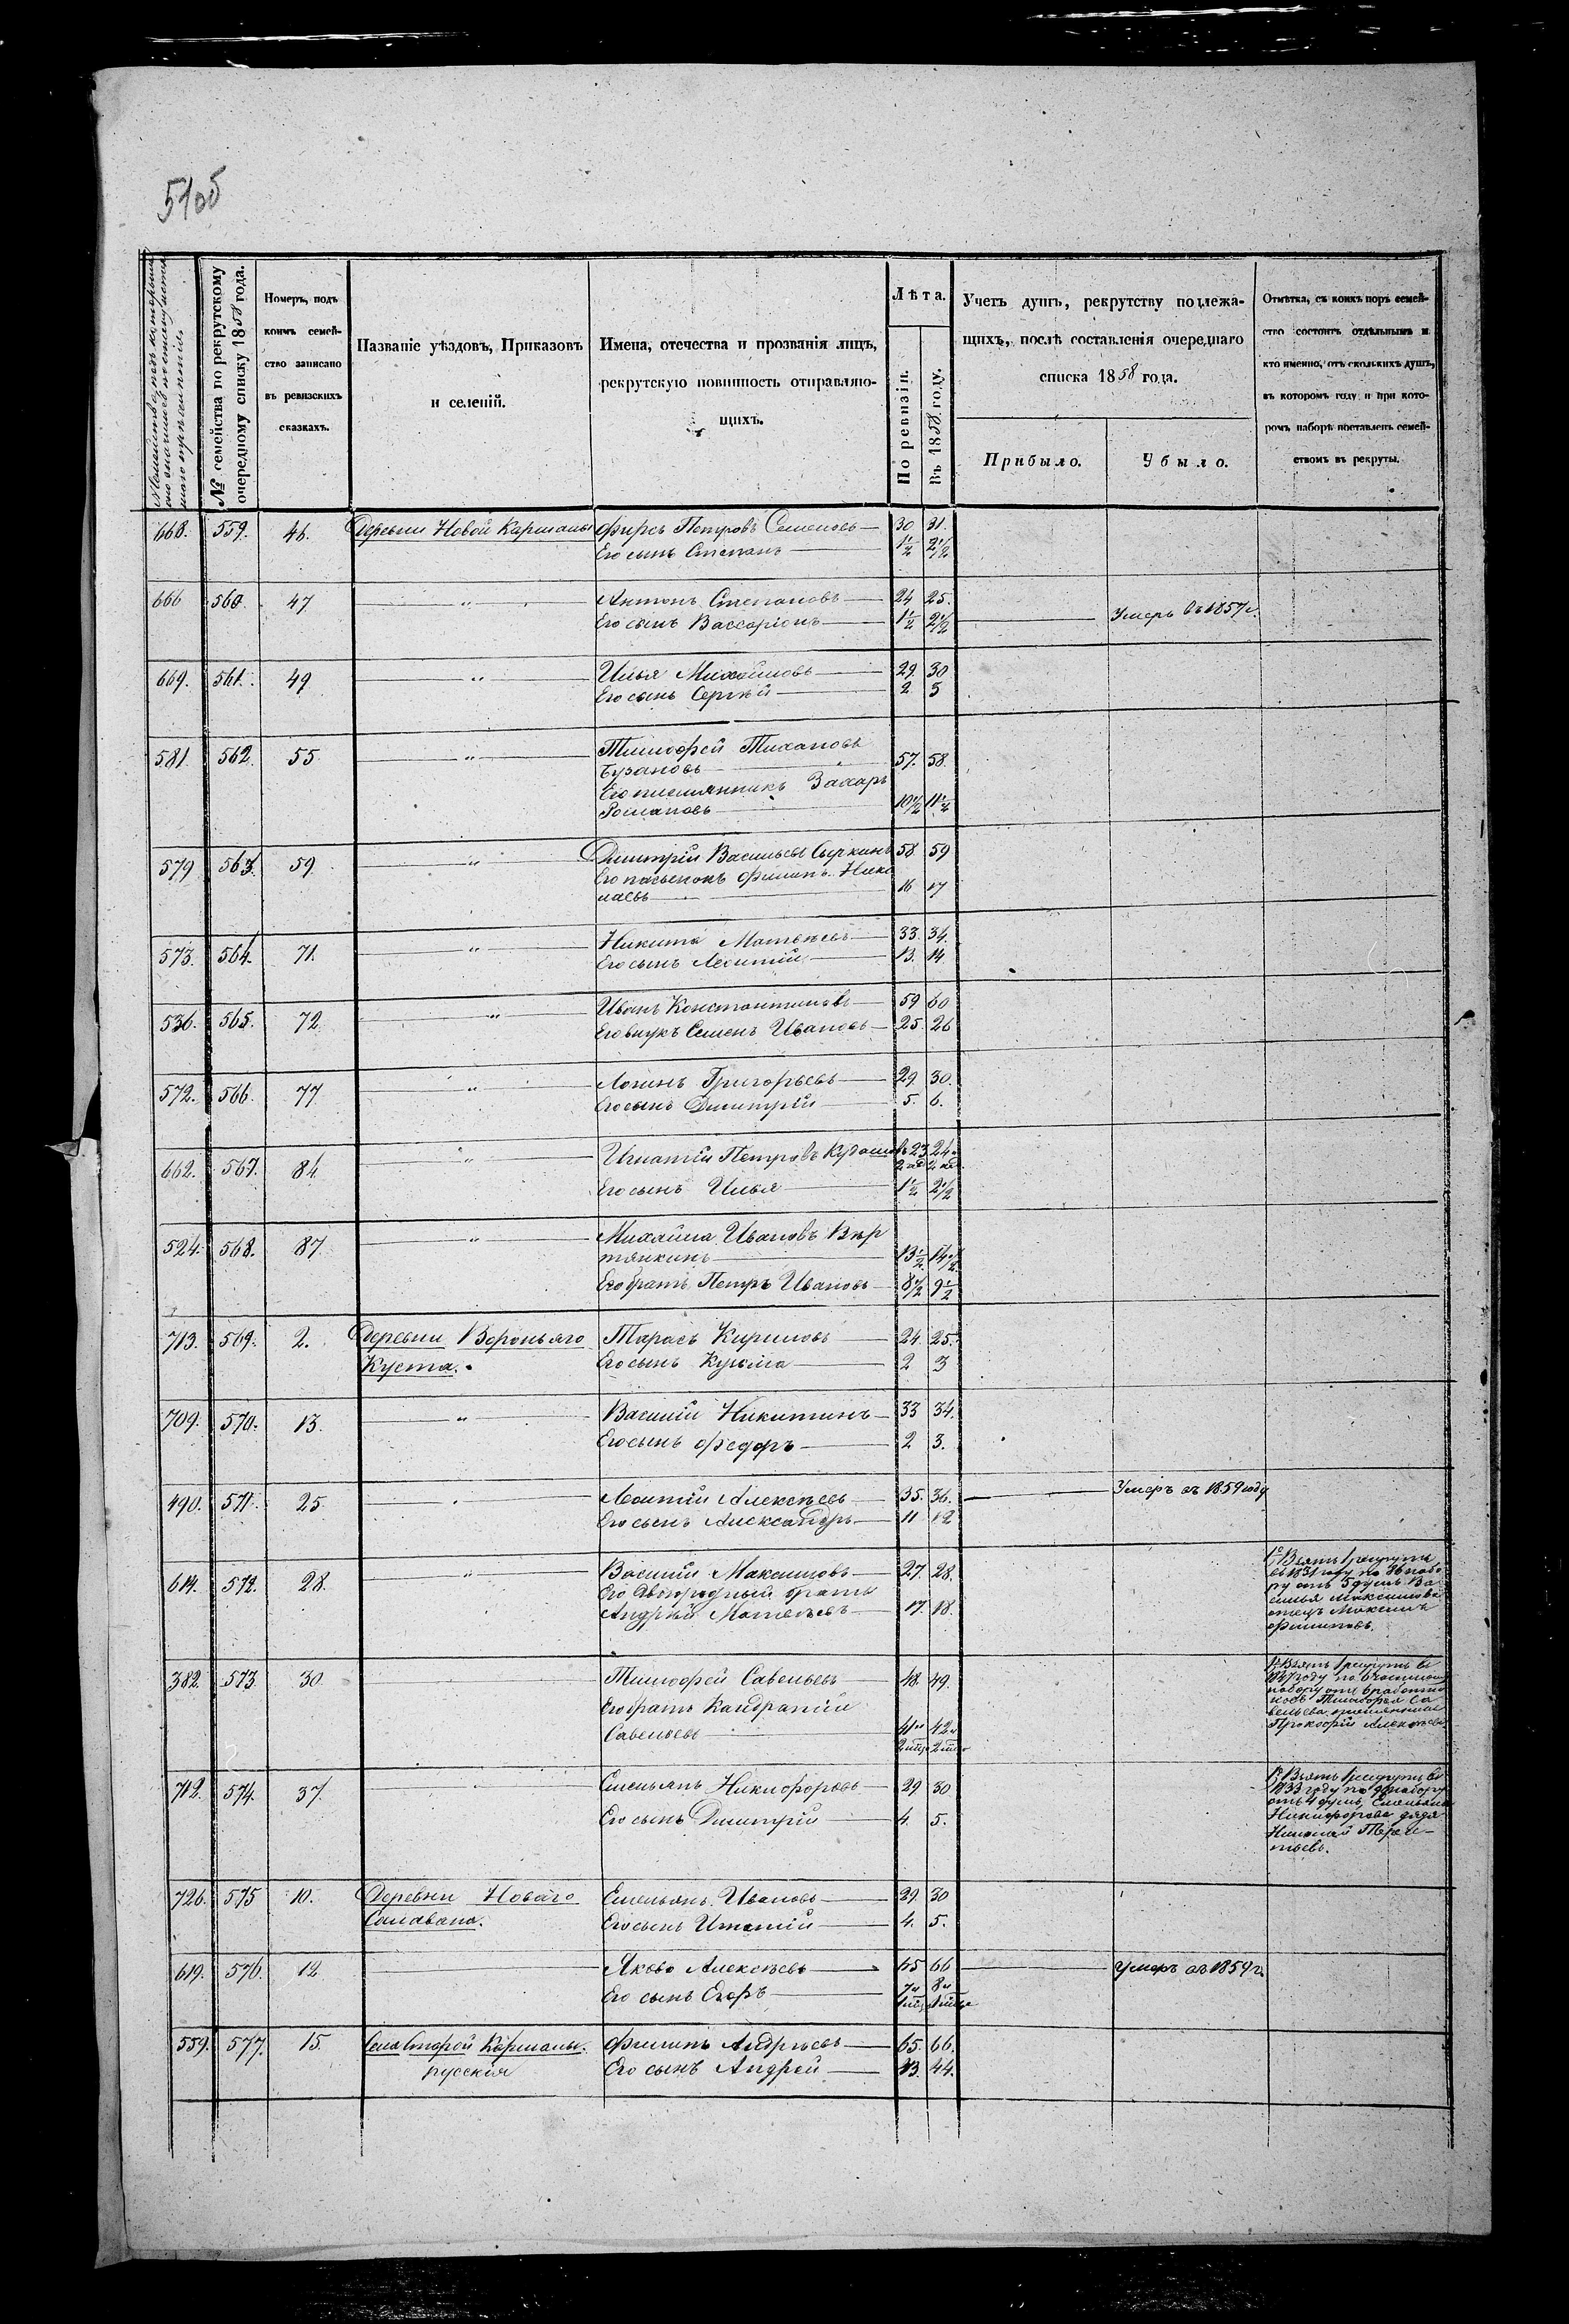 51об
№ семейства по рекрутскому
очередному списку 1858 года.
Номеръ, подъ
коимъ семей-
ство записано
въ ревизскихъ
сказкахъ.
Названіе уѣздовъ, Приказовъ
и селеній.
Имена, отечества и прозванія лицъ,
рекрутскую повинность отправляю-
щихъ.
Лѣта.
По ревизіи.
Въ 1858 году.
Учетъ душъ, рекрутству подлежа-
щихъ, послѣ составленія очереднаго
списка 1858 года.
Прибыло.
Убыло.
Отмѣтка, съ коихъ поръ семей-
ство состоитъ отдѣльнымъ и
кто именно, отъ сколькихъ душъ,
въ которомъ году и при кото-
ромъ наборѣ поставленъ семей-
ствомъ въ рекруты.
668. 559. 46. Деревни Новой Кармалы Фирсъ Петровъ Семеновъ 30 31.
Его сынъ Степанъ 1½ 2½
666 560. 47 " Антонъ Степановъ 24 25.
Его сынъ Вассаріонъ 1½ 2½ Умеръ въ 1857 г.
669. 561. 49 " Илья Михайловъ 29. 30
Его сынъ Сергѣй 2 3
581. 562. 55 " Тимофей
57. 58.
Его племянникъ Захаръ
Романовъ 10½ 11½
579 563. 59 " Дмитрій Васильевъ 58 59
Его пасынокъ Филипъ Нико
лаевъ 16 17
573. 564. 71. " Никита Матвѣевъ 33. 34.
Его сынъ Леонтій 13. 14
536. 565. 72 " Иванъ Константиновъ 59 60
Его внукъ Семенъ Ивановъ 25. 26
572. 566. 77 " Логинъ Григорьевъ 29. 30.
Его сынъ Дмитрій 5. 6.
662. 567. 84 " Игнатій Петровъ 23 24
Его сынъ Илья 1½ 2½
524. 568. 87 " Михайла Ивановъ Вер
тянкинъ 13½ 14½
Его братъ Петръ Ивановъ 8½ 9½
713. 569. 2. Деревни Вороньяго Тарасъ Кириловъ 24. 25.
Куста. Его сынъ Кузьма 2 3
709. 570. 13. " Василій Никитинъ 33 34.
Его сынъ Федоръ 2 3.
490. 571. 25 " Леонтій Алексѣевъ 35. 36. Умеръ въ 1859 году
Его сынъ Александръ 11 12
614. 572. 28. " Василій Максимовъ 27. 28.
Его двоюродный братъ
Андрѣй Матвѣевъ 17. 18.
Взятъ 1 рекрутъ
въ 1831 году по 96 набо
ру отъ 5 душъ Ва
силья Максимова
отецъ Максимъ
Филиповъ.
382. 573. 30. Тимофей Савельевъ 48. 49.
Его братъ Кандратій
Савельевъ 41 42
Взятъ 1 рекрутъ въ
1847 году
Тимофея Са
вельева племянникъ
Прокофій Алексѣевъ
712. 574. 37. Емельянъ Никифоровъ 29 30
Его сынъ Дмитрій 4. 5.
Взятъ 1 рекрутъ въ
1833 году по набору
отъ 4 душъ, Емельяна
Никифорова дядя
Николай Терен-
тьевъ.
726. 575 10. Деревни Новаго Емельянъ Ивановъ 29 30
Салавана. Его сынъ Игнатій 4. 5.
619. 576. 12 Яковъ Алексѣевъ 65 66 Умеръ въ 1859 г.
Его сынъ Егоръ 7 8
559. 577. 15. Села Старой Кармалы. Филипъ Андрѣевъ 65. 66.
русскія Его сынъ Андрей 43. 44.